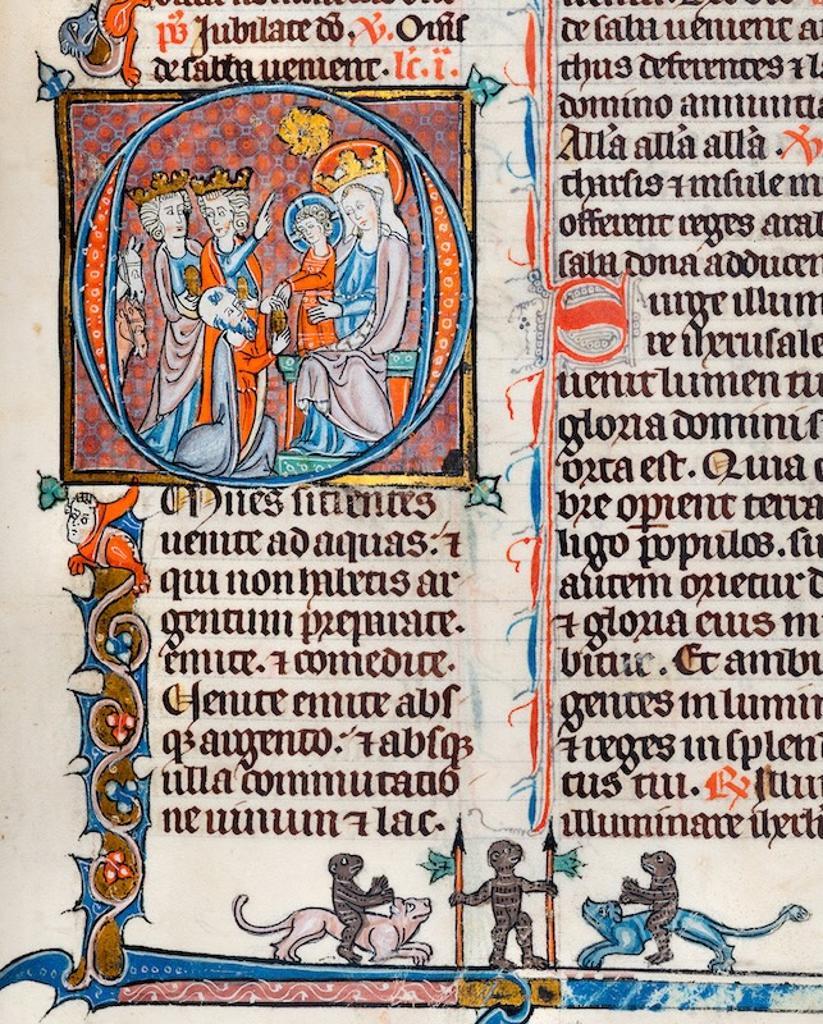 Jubilate dō. V. Om̄s
de saba uenient. lc̄. ī.
Mnes sitientes
uenite ad aquas. ⁊
qui non habetis ar
gentum properate.
emite. ⁊ comedite.
Uenite emite abs
qꝫ argento. ⁊ absqꝫ
ulla commutatio
ne uinum ⁊ lac.
de saba uenient
thus deferentes ⁊
domino annuncia
All'a all'a all'a. V
tharsis ⁊ insule
offerent reges
saba dona adducen
Surge illum
re iherusale
uenit lumen tu
gloria domini
orta est. Quia
bre operient terra
ligo populos.
autem orietur
⁊ gloria eius
bitur. Et ambu
gentes in lumin
⁊ reges in splen
tus tui. R Illu
illuminare